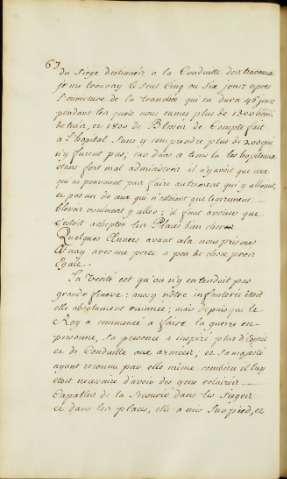 67
du siege destinéz à la Conduitte des travaux
je me trouvay le seul cinq ou six jours apres
l'ouverture de la tranchée qui en dura 46 jours
pendant les quels nous eumes plus de 1200 hom.
de tuéz, et 1800 de Blessez de compte fait
à l'hospital sans y comprendre plus de 200 qui
n'y furent pas, car dans ce tems là les hospitaux
étans fort mal administréz il n'y avoit que ceux
qui ne pouvoient pas faire autrement qui y alloient,
et pas un de ceux qui n'etoient que legerement
blessez vouloient y aller; il faut avouer que
c'etoit acheter les Places bien cher
Quelques Années avant cela nous prismes
avec une perte à peu de chose près
Egale.
La Verité est qu'on n'y entendoit pas
grande finesse; aussy nôtre infanterie étoit
elle absolument ruinée; mais depuis que le
Roy a commencé à faire la guerre en
personne, sa presence a inspiré plus d'Esprit
et de Conduitte aux armées, et sa majesté
ayant reconnu par elle même combien il luy
étoit necessaire d'avoir des gens éclairés
Capables de la Servir dans les sieges
et dans les places, elle a mis sur pied, et